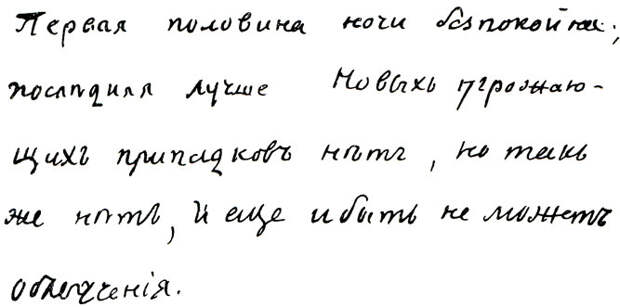 Первая половина ночи безпокойная;
послѣдняя лучше Новыхъ угрожаю-
щихъ припадковъ нѣтъ, но такъ
же нѣтъ, и еще и быть не можетъ
облегченія.